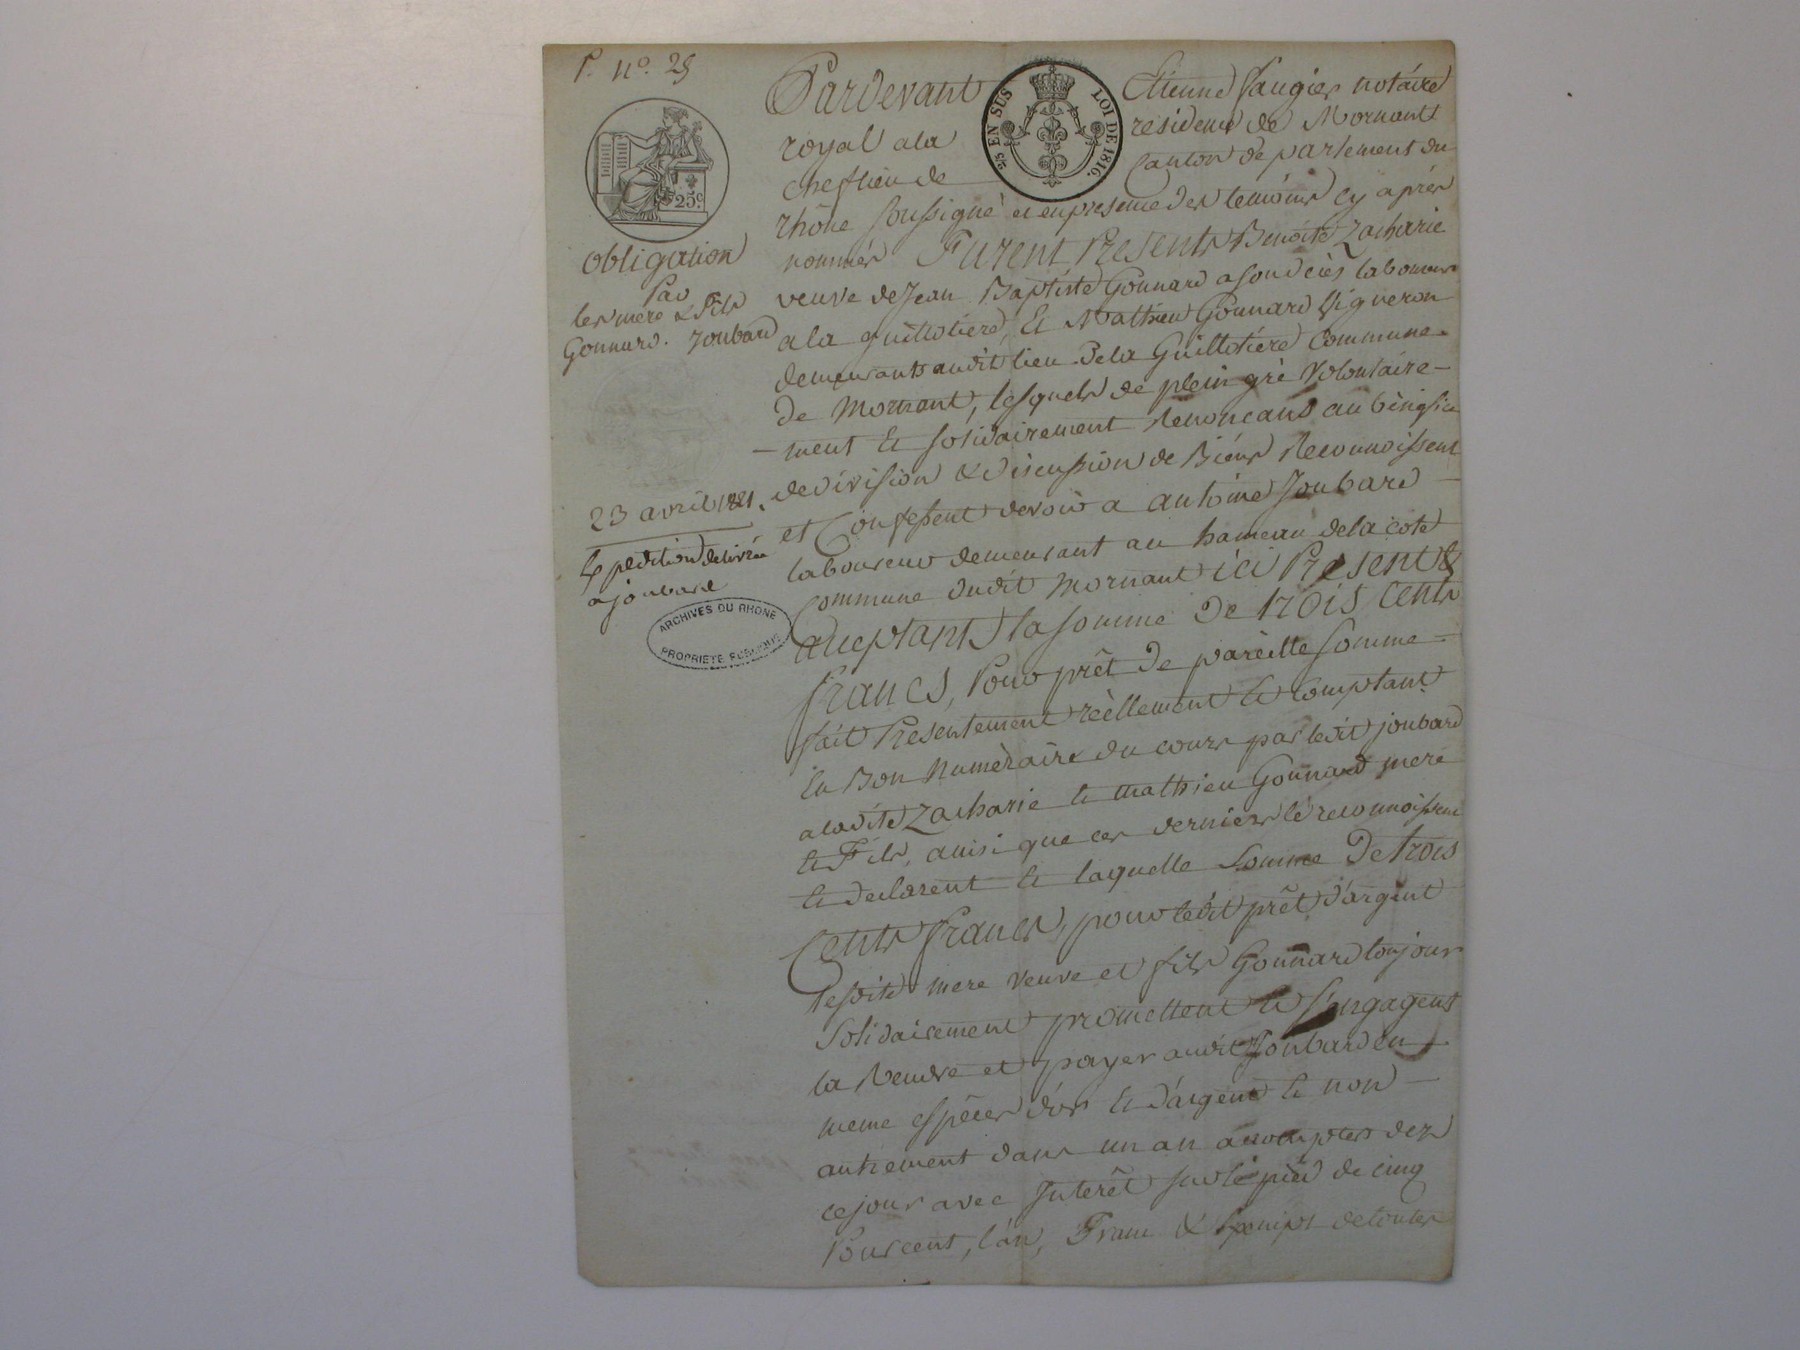 P. No. 25
25c.
obligation
Par
les mere & Fils
Gonnard. Joubard
23 avril 1821.
Expedition delivrée
a joubard
ARCHIVES DU RHONE
PROPRIETE PUBLIQUE
EN SUS LOI DE 1816.
Pardevant Etienne Faugier notaire
royal a la residence de Mornant
cheflieu de Canton departement du
rhône soussigné et en presence des temoins cy après
nommés Furent Presents Benoite Zacharie
veuve de Jean Baptiste Gonnard a son décès laboureur
a la guillotiere, Et Mathieu Gonnard Vigneron
demeurants audit lieu de la Guillotiére Commune
de Mornant, lesquels de plein gré Volontaire-
-ment Et solidairement Renoncant au bénéfice
de division & discussion de Biens Reconnoissent
et Confessent devoir a antoine Joubard
laboureur demeurant au hameau de la côte
Commune dudit Mornant ici Present &
acceptant la somme De trois Cents
francs, Pour prêt de pareille somme
fait Presentement réellement Et Comptant
En Bon Numéraire du cours par ledit joubard
a ladite Zacharie Et Mathieu Gonnard mere
Et Fils, ainsi que ces derniers le reconnoissent
Et declarent Et laquelle Somme De trois
Cents francs, pour ledit prêt d'argent
lesdits mere veuve et fils Gonnard toujours
solidairement promettent Et s'engagent
la Rendre et payer audit Joubard en
meme espèces d'or Et d'argent Et non
autrement dans un an a compter de
ce jour avec Interêt sur le pied de cinq
Pourcent, l'an, Franc & Exempt de toutes